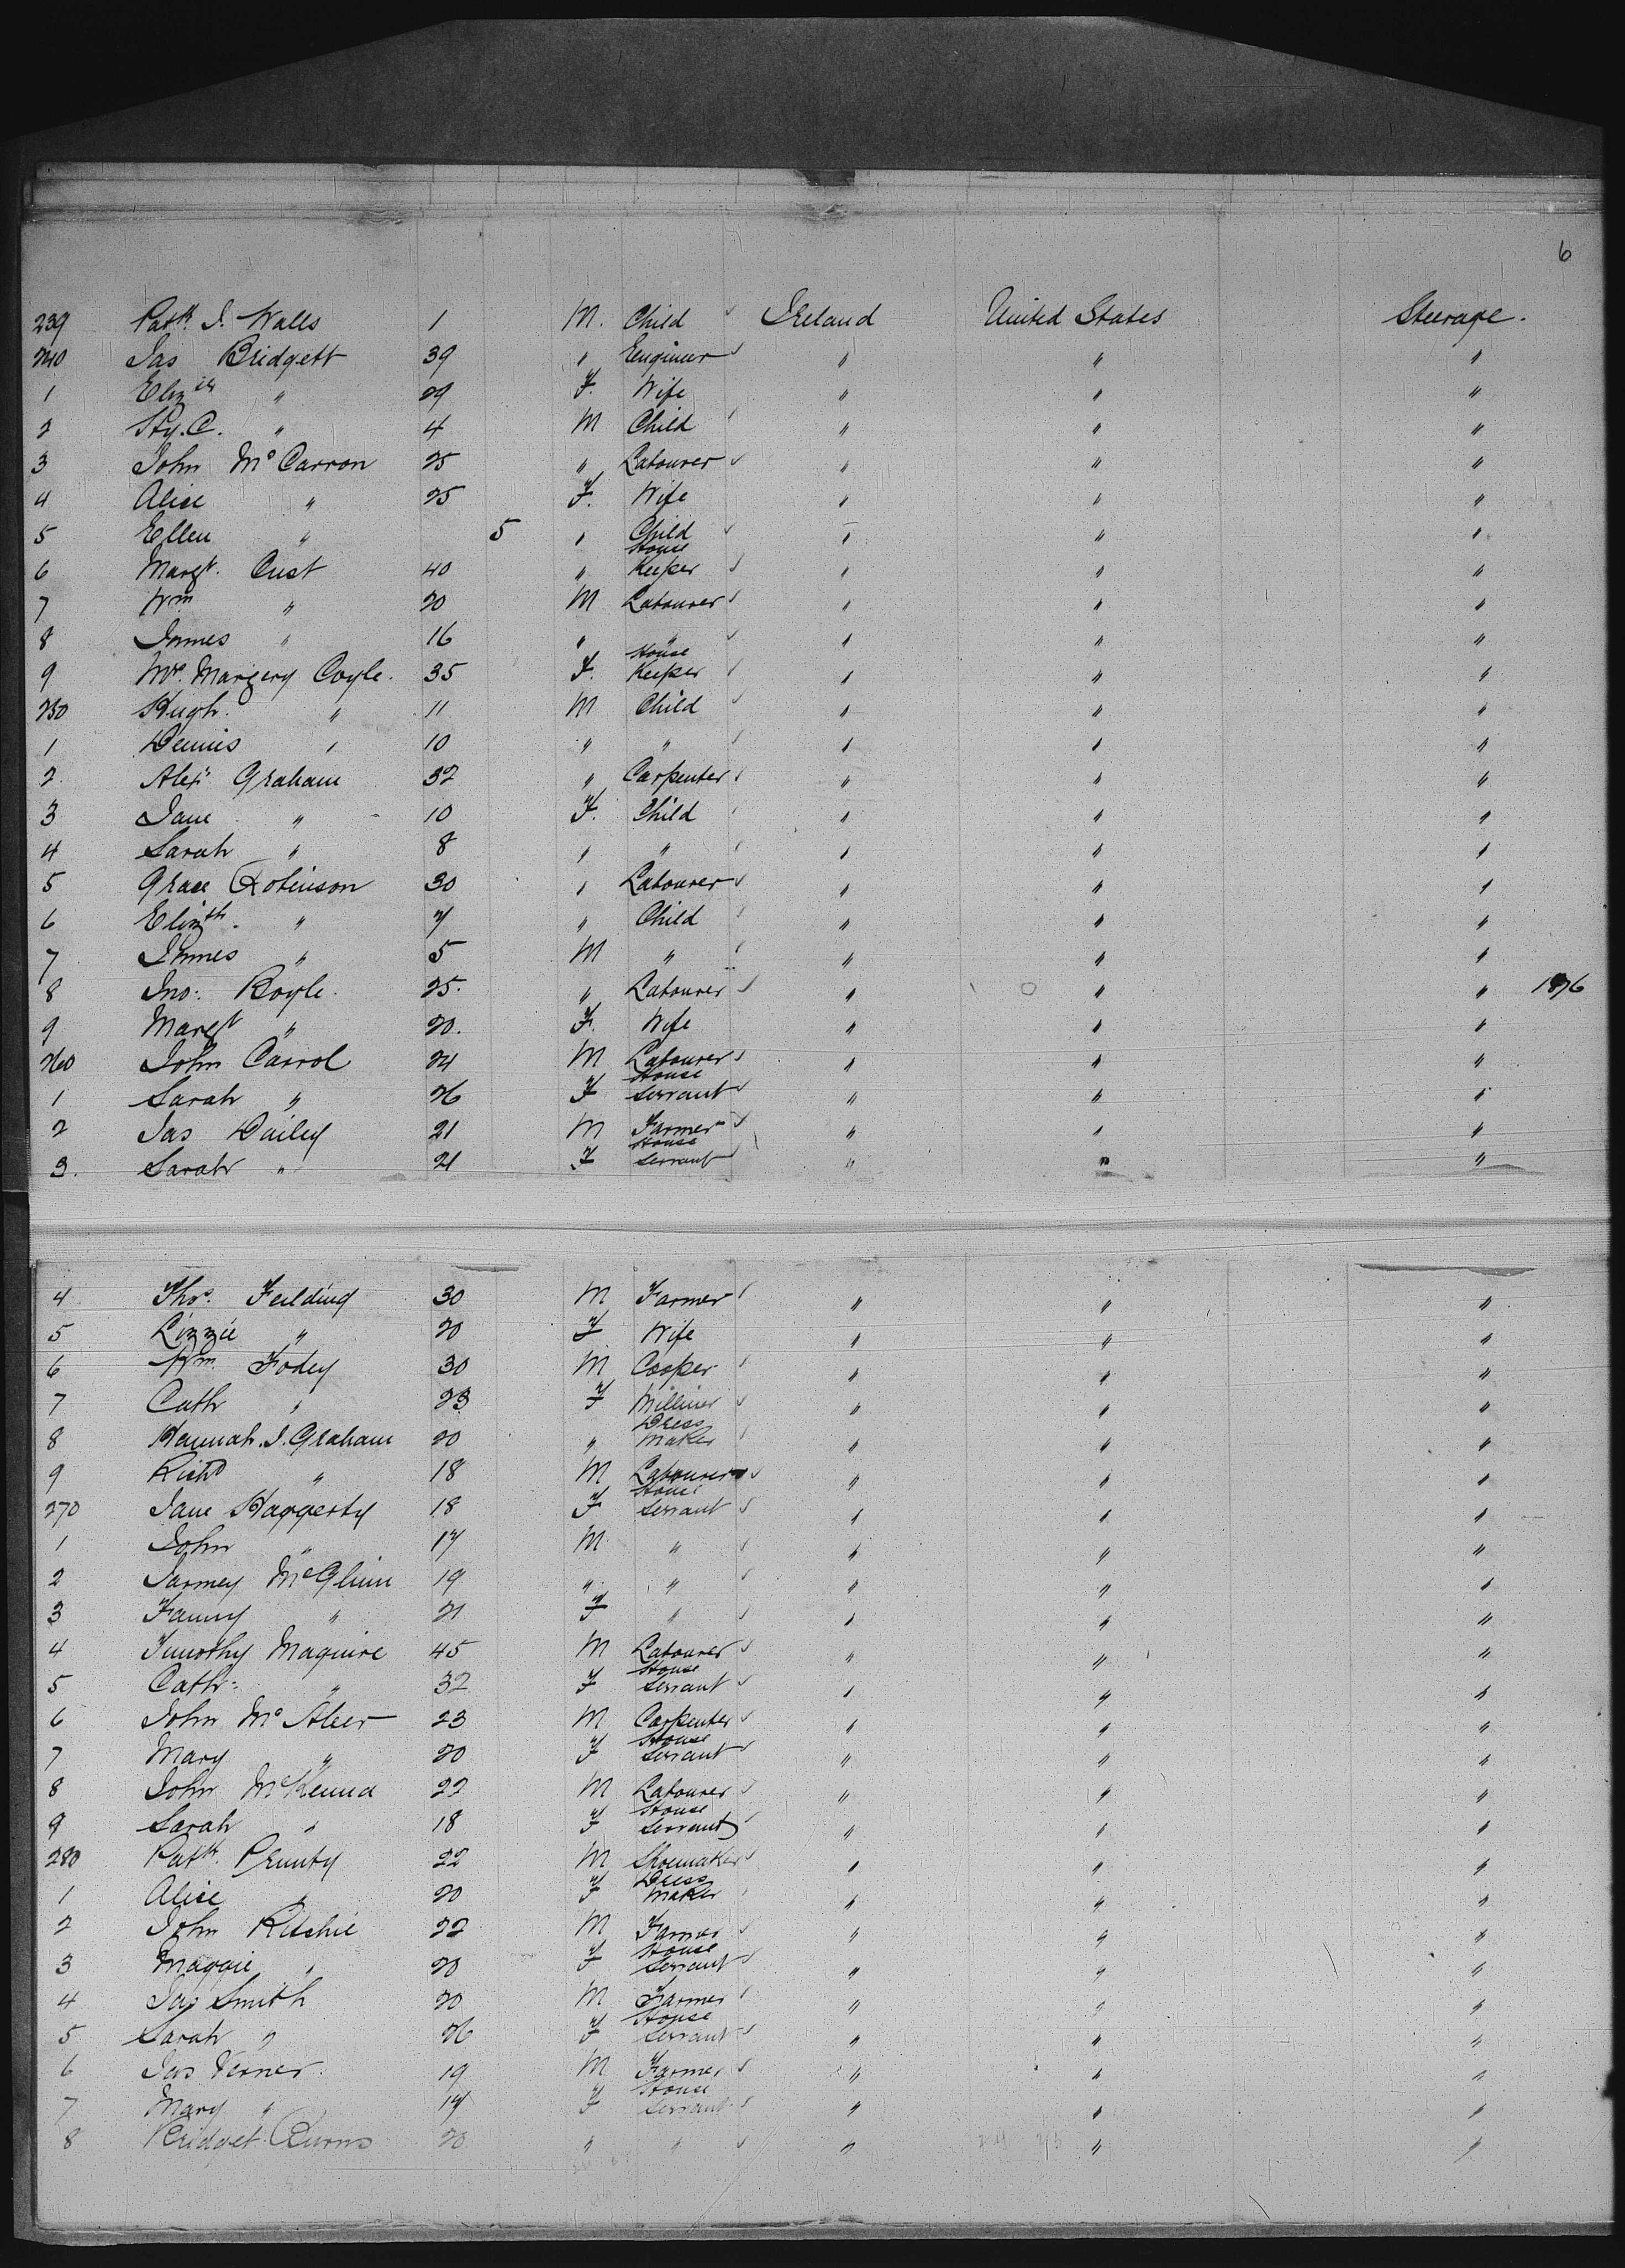 6
239 Patk J. Walls 1 M. Child Ireland United States Steerage.
240 Jas Bridgett 39 " Engineer " " "
1 Elizth " 29 F. Wife " " "
2 Hy. C. " 4 M Child " " "
3 John McCarron 25 " Labourer " " "
4 Alice " 25 F. Wife " " "
5 Ellen " 5 " Child " " "
6 Margt. Cust 40 " House Keeper " " "
7 Wm " 20 M Labourer " " "
8 James " 16 " " " " "
9 Mrs. Margery Coyle. 35 F. House Keeper " " "
250 Hugh " 11 M Child " " "
1 Dennis " 10 " " " " "
2 Alexr Graham 32 " Carpenter " " "
3 Jane " 10 F. Child " " "
4 Sarah " 8 " " " " "
5 Grace Robinson 30 " Labourer " " "
6 Elizth. " 7 " Child " " "
7 James " 5 M " " " "
8 Jno: Boyle 25. " Labourer " " " 1876
9 Margt " 20. F. Wife " " "
260 John Carrol 24 M Labourer " " "
1 Sarah " 26 F House Servant " " "
2 Jas Dailey 21 M Farmer " " "
3. Sarah " 21 F House Servant " " "
4 Thos. Feilding 30 M Farmer " " "
5 Lizzie " 20 F Wife " " "
6 Wm. Fodey 30 M Cooper " " "
7 Cath " 23 F Milliner " " "
8 Hannah. J. Graham 20 " Dress Maker " " "
9 Richd " 18 M Labourer " " "
270 Jane Haggerty 18 F House Servant " " "
1 John " 17 M " " " "
2 McGlinn 19 " " " " "
3 Fanny " 21 F " " " "
4 Timothy Maguire 45 M Labourer " " "
5 Cath: " 32 F House Servant " " "
6 John McAleer 23 M Carpenter " " "
7 Mary " 20 F House Servant " " "
8 John McKenna 22 M Labourer " " "
9 Sarah " 18 F House Servant " " "
280 Patk. Prunty 22 M Shoemaker " " "
1 Alice " 20 F Dress Maker " " "
2 John Ritchie 22 M Farmer " " "
3 Maggie " 20 F House Servant " " "
4 Jas Smith 20 M Farmer " " "
5 Sarah " 26 F House Servant " " "
6 Jas Verner. 19 M Farmer " " "
7 Mary " 17 F House Servant " " "
8 Bridget Burns 20 " " " " "